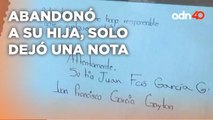 ABANDONÓ
A SU HIJA, SOLO
DEJÓ UNA NOTA
adn40
haga responsable
Atentamente.
Su tio Juan Fcos García G.
Juan Francisco García Gaytan